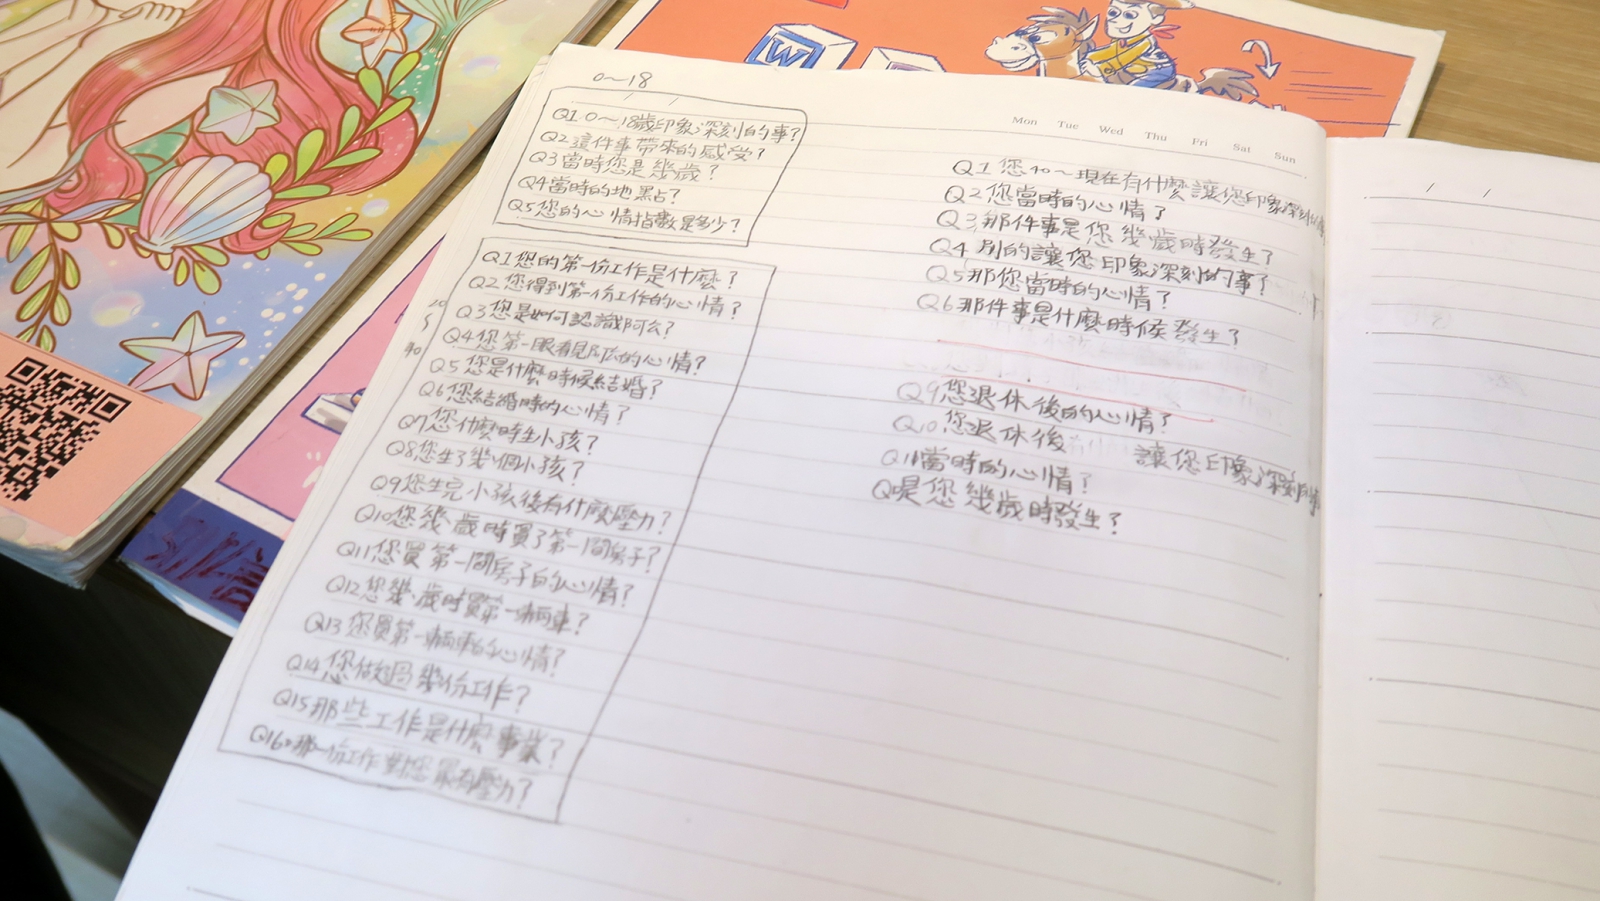 W
0～18
Q1.0～18歲印象深刻的事?
Q2這件事帶來的感受?
Q3當時您是幾歲?
Q4當時的地點?
Q5您的心情指數是多少?
20
40
Q1您的第一份工作是什麼?
Q2您得到第一份工作的心情?
Q3您是如何認識阿公?
Q4您第一眼看見阿公的心情?
Q5您是什麼時候結婚?
Q6您結婚時的心情?
Q7您什麼時生小孩?
Q8您生了幾個小孩?
Q9您生完小孩後有什麼壓力?
Q10您幾歲時買了第一間房子?
Q11您買第一間房子的心情?
Q12您幾歲時買第一輛車?
Q13您買第一輛車的心情?
Q14您做過幾份工作?
Q15那些工作是什麼事業?
Q16那一份工作對您最有壓力?
Mon Tue Wed Thu Fri Sat Sun
Q1您40～現在有什麼讓您印象深刻的事
Q2您當時的心情?
Q3那件事是您幾歲時發生?
Q4別的讓您印象深刻的事?
Q5那您當時的心情?
Q6那件事是什麼時候發生?
Q9您退休後的心情?
Q10您退休後 讓您印象深刻的事
Q11當時的心情?
Q是您幾歲時發生?